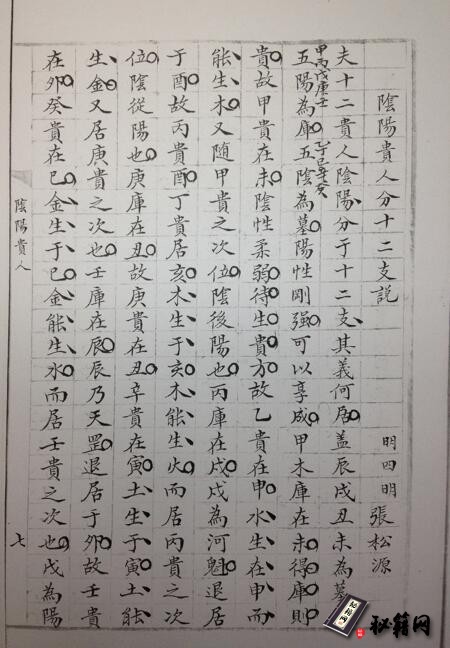 陰陽貴人分十二支説 明四明張松源
夫十二貴人陰陽分于十二支、其義何居蓋辰戌丑未為墓
甲丙戊庚壬五陽為庫乙丁己辛癸五陰為墓陽性剛強可以享成甲木庫在未得庫則
貴故甲貴在未陰性柔弱待生貴方故乙貴在申水生在申而
能生木又隨甲貴之次位陰後陽也丙庫在戌戌為河魁退居
于酉故丙貴酉丁貴居亥木生于亥木能生火而居丙貴之次
位陰從陽也庚庫在丑故庚貴在丑辛貴在寅土生于寅土能
生金又居庚貴之次也壬庫在辰辰乃天罡退居于卯故壬貴
在卯癸貴在巳金生于巳金能生水而居壬貴之次也戊為陽
陰陽貴人
七
秘籍网